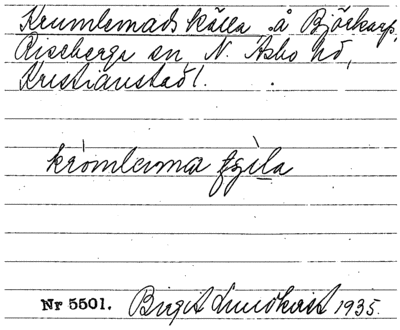 Krumlemads källa å Björkarp,
Riseberga sn, N. Åsbo hd,
Kristianstad l.
Nr 5501. Birgit Lundkvist 1935.